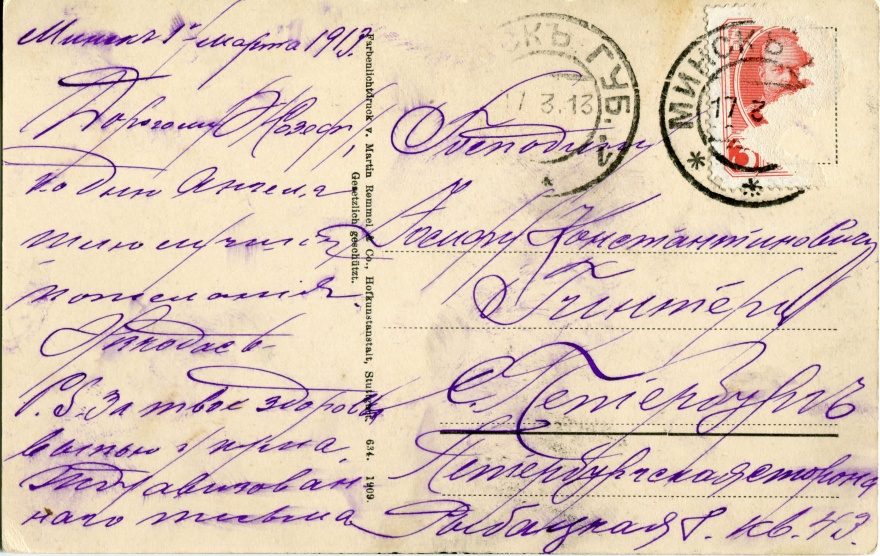 Минскъ 1го марта 1913.
Дорогому Юзефу,
ко дню Ангела
шлю лучшія
пожеланія.
P.S. За твое здоровье
выпью
письма
Farbenlichtdruck v. Martin Rommel & Co., Hofkunstanstalt, Stuttgart. 634. 1909.
Gesetzlich geschützt.
СКЪ ГУБ. 1
17 3.13
МИНСКЪ
17 3
Господину
Іосифу Константиновичу
Гинтеръ
С. Петербургъ
Петербургская сторона
Рыбацкая 8. кв. 43.